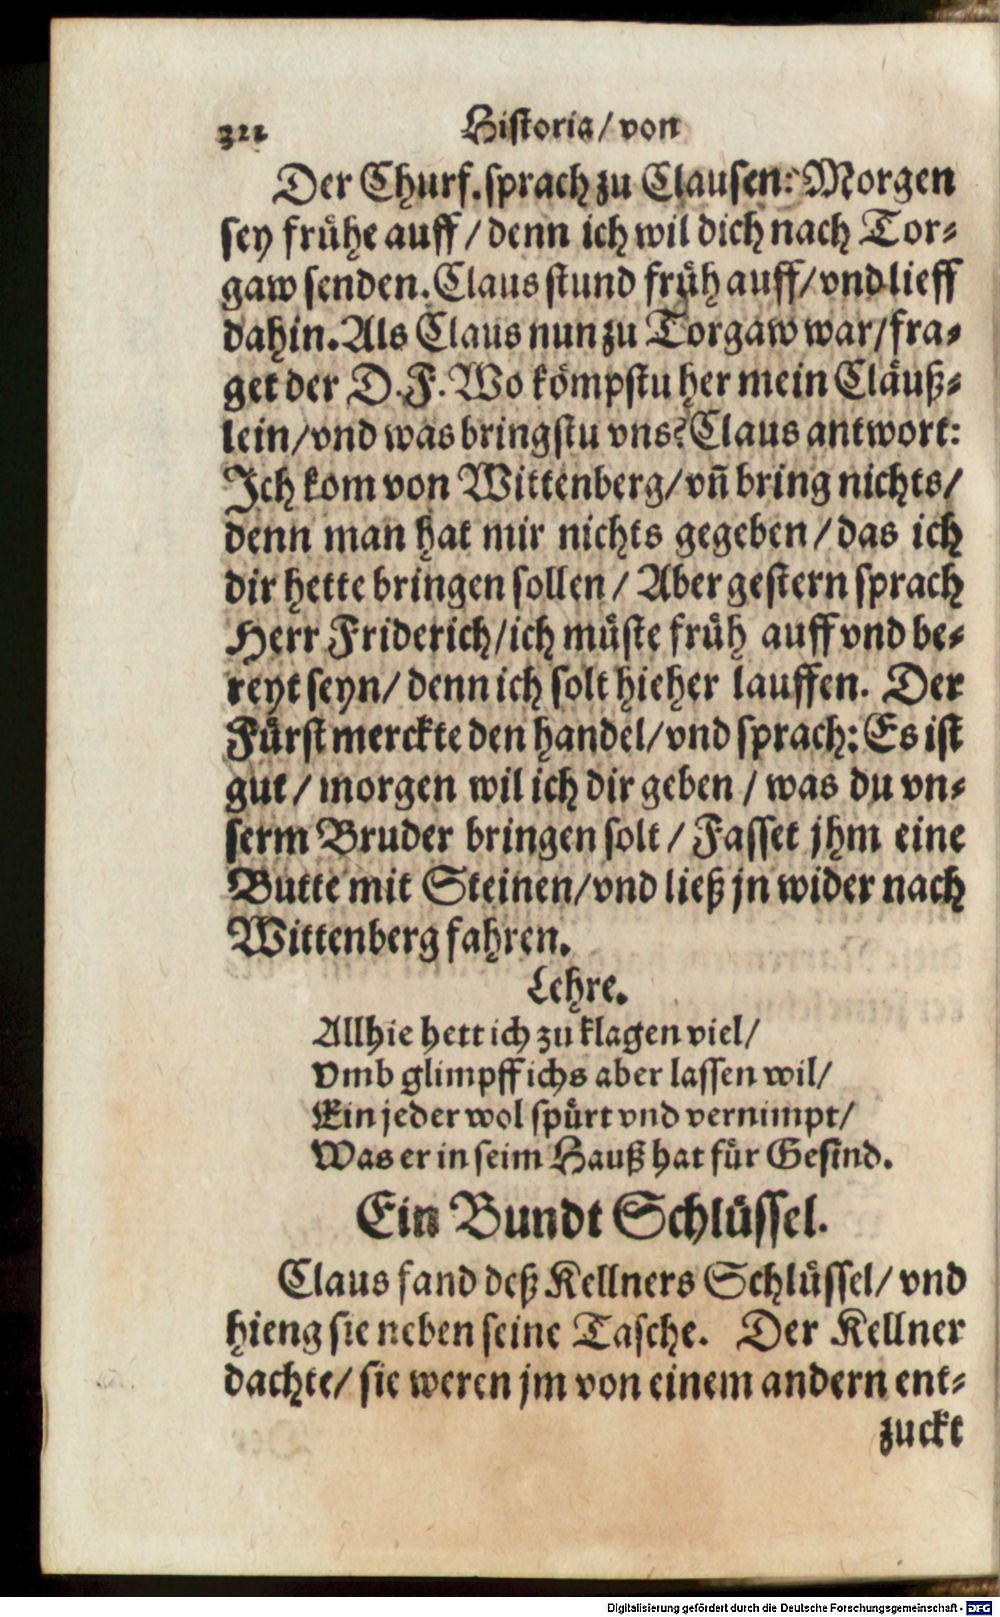 322 Historia/ von
Der Churf. sprach zu Clausen: Morgen
sey frühe auff / denn ich wil dich nach Tor⸗
gaw senden. Claus stund früh auff/ vnd lieff
dahin. Als Claus nun zu Torgaw war/ fra⸗
get der D. F. Wo kömpstu her mein Cläuß⸗
lein/ vnd was bringstu vns? Claus antwort:
Jch kom von Wittenberg/ vñ bring nichts/
denn man hat mir nichts gegeben / das ich
dir hette bringen sollen / Aber gestern sprach
Herr Friderich/ ich müste früh auff vnd be⸗
reyt seyn/ denn ich solt hieher lauffen. Der
Fürst merckte den handel/ vnd sprach: Es ist
gut / morgen wil ich dir geben / was du vn⸗
serm Bruder bringen solt / Fasset jhm eine
Butte mit Steinen/ vnd ließ jn wider nach
Wittenberg fahren.
Lehre.
Allhie hett ich zu klagen viel/
Vmb glimpff ichs aber lassen wil/
Ein jeder wol spürt vnd vernimpt/
Was er in seim Hauß hat für Gesind.
Ein Bundt Schlüssel.
Claus fand deß Kellners Schlüssel/ vnd
hieng sie neben seine Tasche. Der Kellner
dachte/ sie weren jm von einem andern ent⸗
zuckt
Digitalisierung gefördert durch die Deutsche Forschungsgemeinschaft - DFG